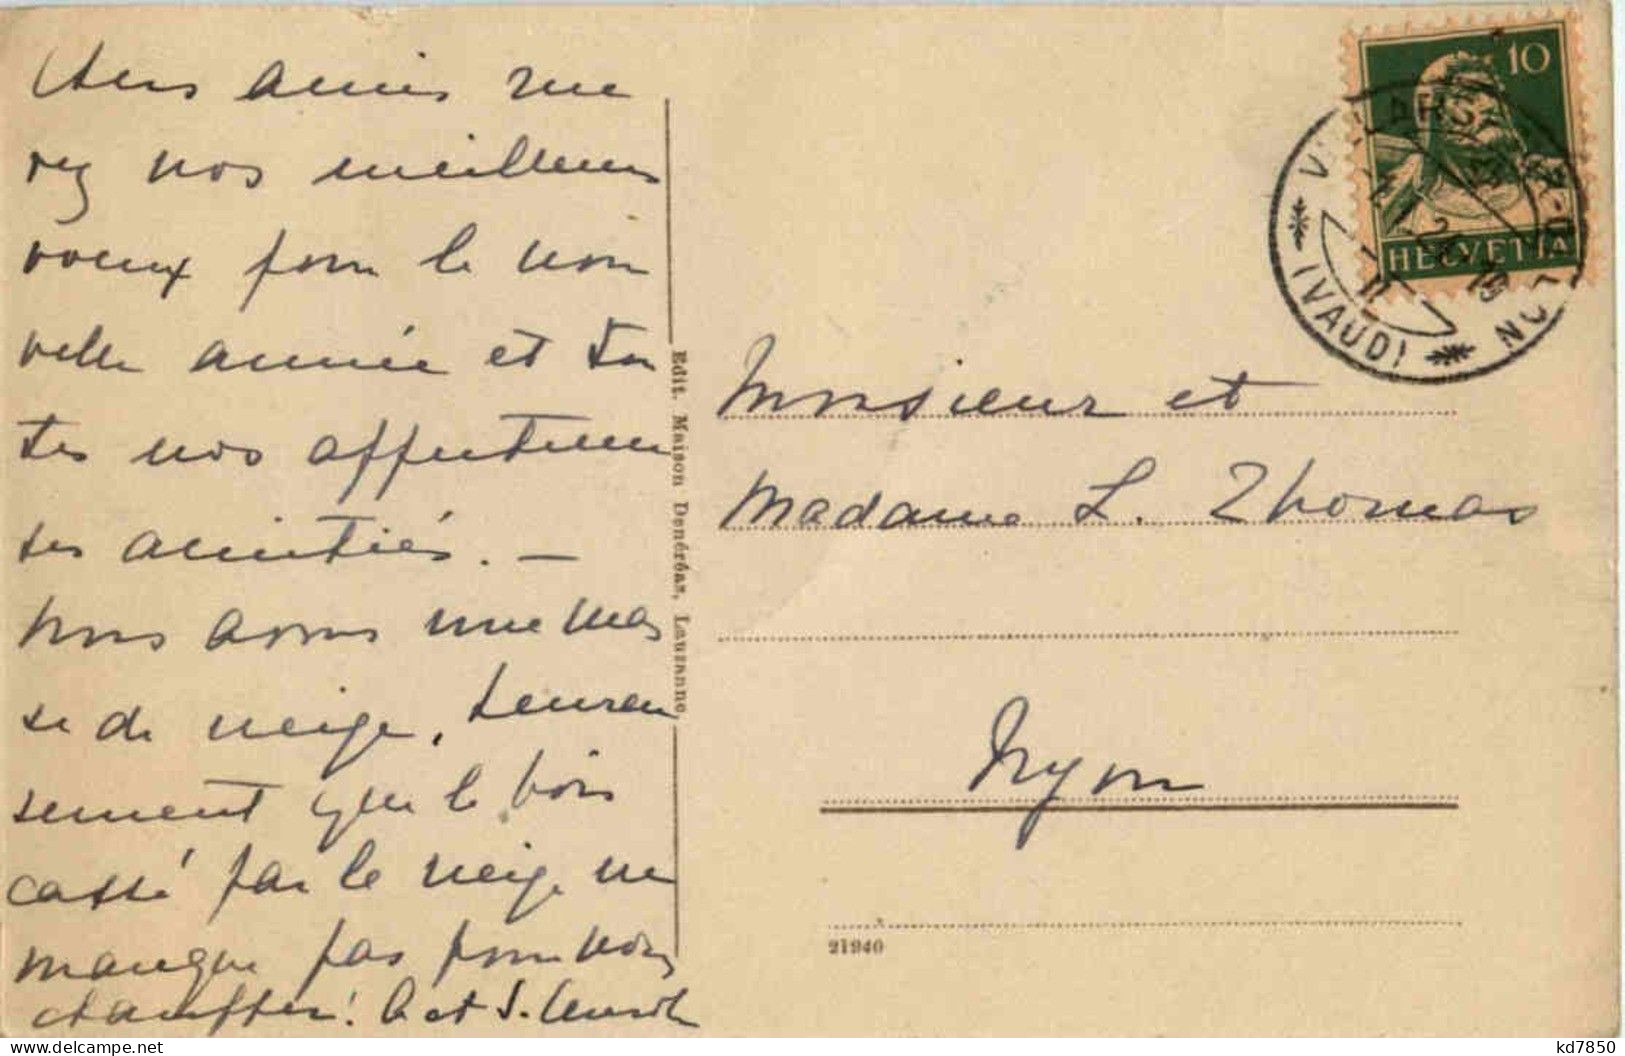 Chers amis rece
vez nos meilleurs
voeux pour la nou
velle année et tou
tes nos affectueu
ses amitiés. —
Nous avons une mas
se de neige, heureu
sement que le bois
cassé par la neige ne
manque pas pour nous
chauffer!
Edit. Maison Denéréaz, Lausanne
10
HELVETIA
(VAUD)
Monsieur et
Madame L. Thomas
Nyon
21940
kd7850